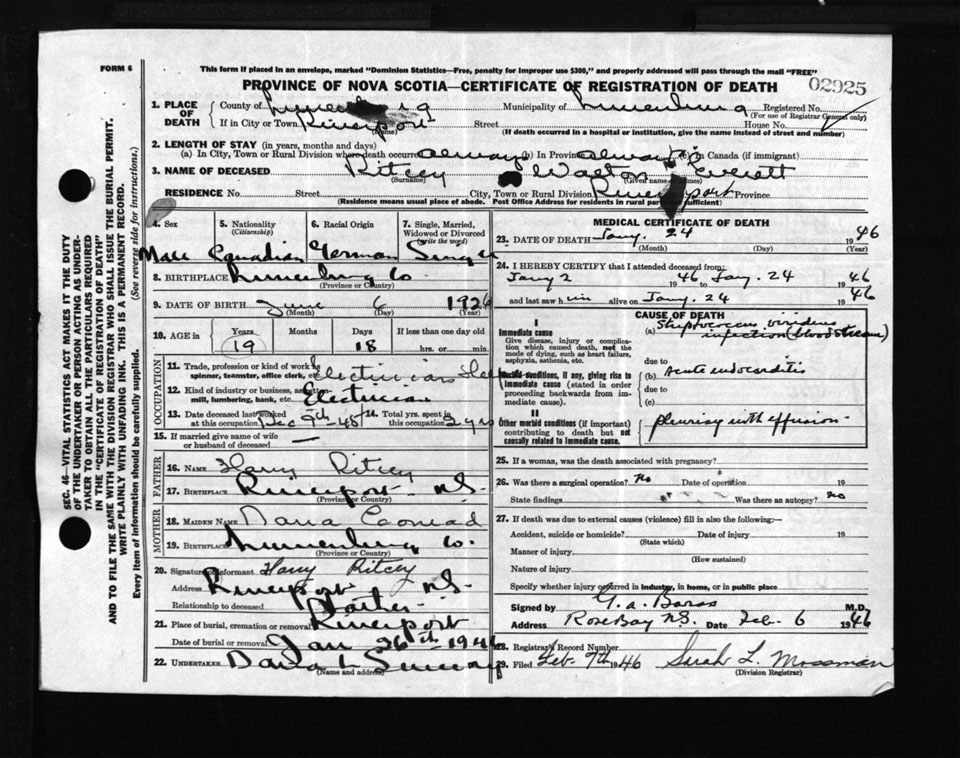 FORM 6
This form if placed in an envelope, marked "Dominion Statistics—Free, penalty for improper use $300," and properly addressed will pass through the mail "FREE"
PROVINCE OF NOVA SCOTIA—CERTIFICATE OF REGISTRATION OF DEATH
02925
SEC. 46—VITAL STATISTICS ACT MAKES IT THE DUTY
OF THE UNDERTAKER OR PERSON ACTING AS UNDER-
TAKER TO OBTAIN ALL THE PARTICULARS REQUIRED
IN THE "CERTIFICATE OF REGISTRATION OF DEATH"
AND TO FILE THE SAME WITH THE DIVISION REGISTRAR WHO SHALL ISSUE THE BURIAL PERMIT.
WRITE PLAINLY WITH UNFADING INK. THIS IS A PERMANENT RECORD.
Every item of information should be carefully supplied. (See reverse side for instructions.)
1. PLACE OF DEATH
County of Lunenburg Municipality of Lunenburg Registered No.
(For use of Registrar General only)
If in City or Town Riverport Street House No.
(Name) (If death occurred in a hospital or institution, give the name instead of street and number)
2. LENGTH OF STAY (in years, months and days)
(a) In City, Town or Rural Division where death occurred always (b) In Province always (c) in Canada (if immigrant)
3. NAME OF DECEASED Ritcey Walton Everett
(Surname) (Given names)
RESIDENCE No. Street City, Town or Rural Division Riverport Province
(Residence means usual place of abode. Post Office Address for residents in rural parts sufficient)
4. Sex 5. Nationality (Citizenship) 6. Racial Origin 7. Single, Married, Widowed or Divorced (write the word)
Male Canadian German Single
8. BIRTHPLACE Lunenburg Co
(Province or Country)
9. DATE OF BIRTH June 6 1926
(Month) (Day) (Year)
10. AGE in Years Months Days If less than one day old
19 18 hrs. or min.
OCCUPATION
11. Trade, profession or kind of work as spinner, teamster, office clerk, etc. Electricians
12. Kind of industry or business, as cotton mill, lumbering, bank, etc. Electrician
13. Date deceased last worked at this occupation Dec 9th-45 14. Total yrs. spent in this occupation 2 yrs
15. If married give name of wife or husband of deceased —
FATHER
16. NAME Harry Ritcey
17. BIRTHPLACE Riverport N.S.
(Province or Country)
MOTHER
18. MAIDEN NAME Conrad
19. BIRTHPLACE Lunenburg Co.
(Province or Country)
20. Signature of informant Harry Ritcey
Address Riverport N.S.
Relationship to deceased Father
21. Place of burial, cremation or removal Riverport
Date of burial or removal Jan 26th 1946
22. UNDERTAKER
(Name and address)
MEDICAL CERTIFICATE OF DEATH
23. DATE OF DEATH Jany. 24 1946
(Month) (Day) (Year)
24. I HEREBY CERTIFY that I attended deceased from:
Jany 2 1946 to Jany. 24 1946
and last saw him alive on Jany. 24 1946
CAUSE OF DEATH
I
Immediate cause
Give disease, injury or complication which caused death, not the mode of dying, such as heart failure, asphyxia, asthenia, etc.
(a) Streptococcus viridens
infection (bloodstream)
due to
Morbid conditions, if any, giving rise to immediate cause (stated in order proceeding backwards from immediate cause).
(b) Acute endocarditis
due to
(c)
II
Other morbid conditions (if important) contributing to death but not causally related to immediate cause.
pleurisy with effusion
25. If a woman, was the death associated with pregnancy?
26. Was there a surgical operation? no Date of operation 19
State findings Was there an autopsy? no
27. If death was due to external causes (violence) fill in also the following:—
Accident, suicide or homicide? Date of injury 19
(State which)
Manner of injury
(How sustained)
Nature of injury
Specify whether injury occurred in industry, in home, or in public place
Signed by G. A. Barss M.D.
Address Rose Bay N.S. Date Feb. 6 1946
28. Registrar's Record Number
29. Filed Feb. 7th 1946 Sarah L. Mossman
(Division Registrar)